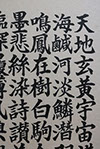 天地玄黃宇宙
海鹹河淡鱗潛
鳴鳳在樹白駒
墨悲絲染詩讚